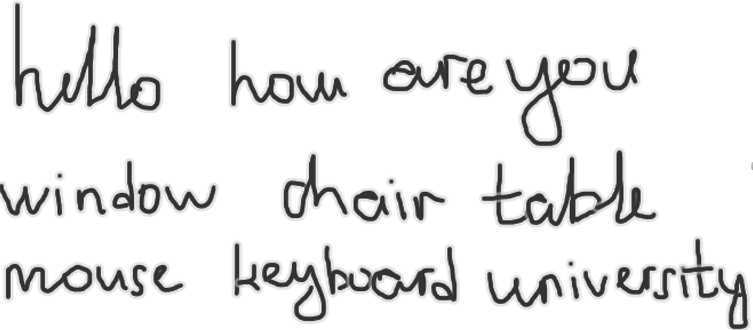 hello how are you
window chair table
mouse keyboard university